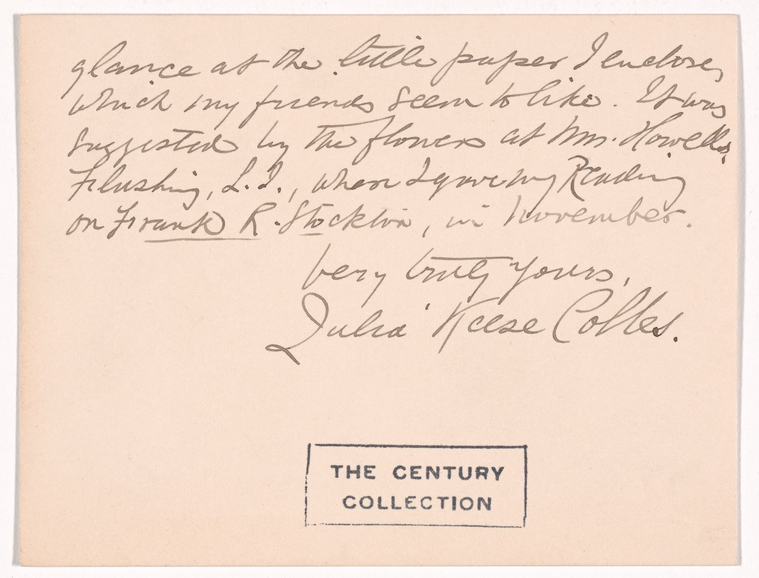 glance at the little paper I enclose,
which my friends seem to like. It was
suggested by the flowers at Mrs. Howells,
Flushing, L.I., where I gave my Reading
on Frank R. Stockton, in November.
Very truly yours,
Julia Keese Colles.
THE CENTURY
COLLECTION